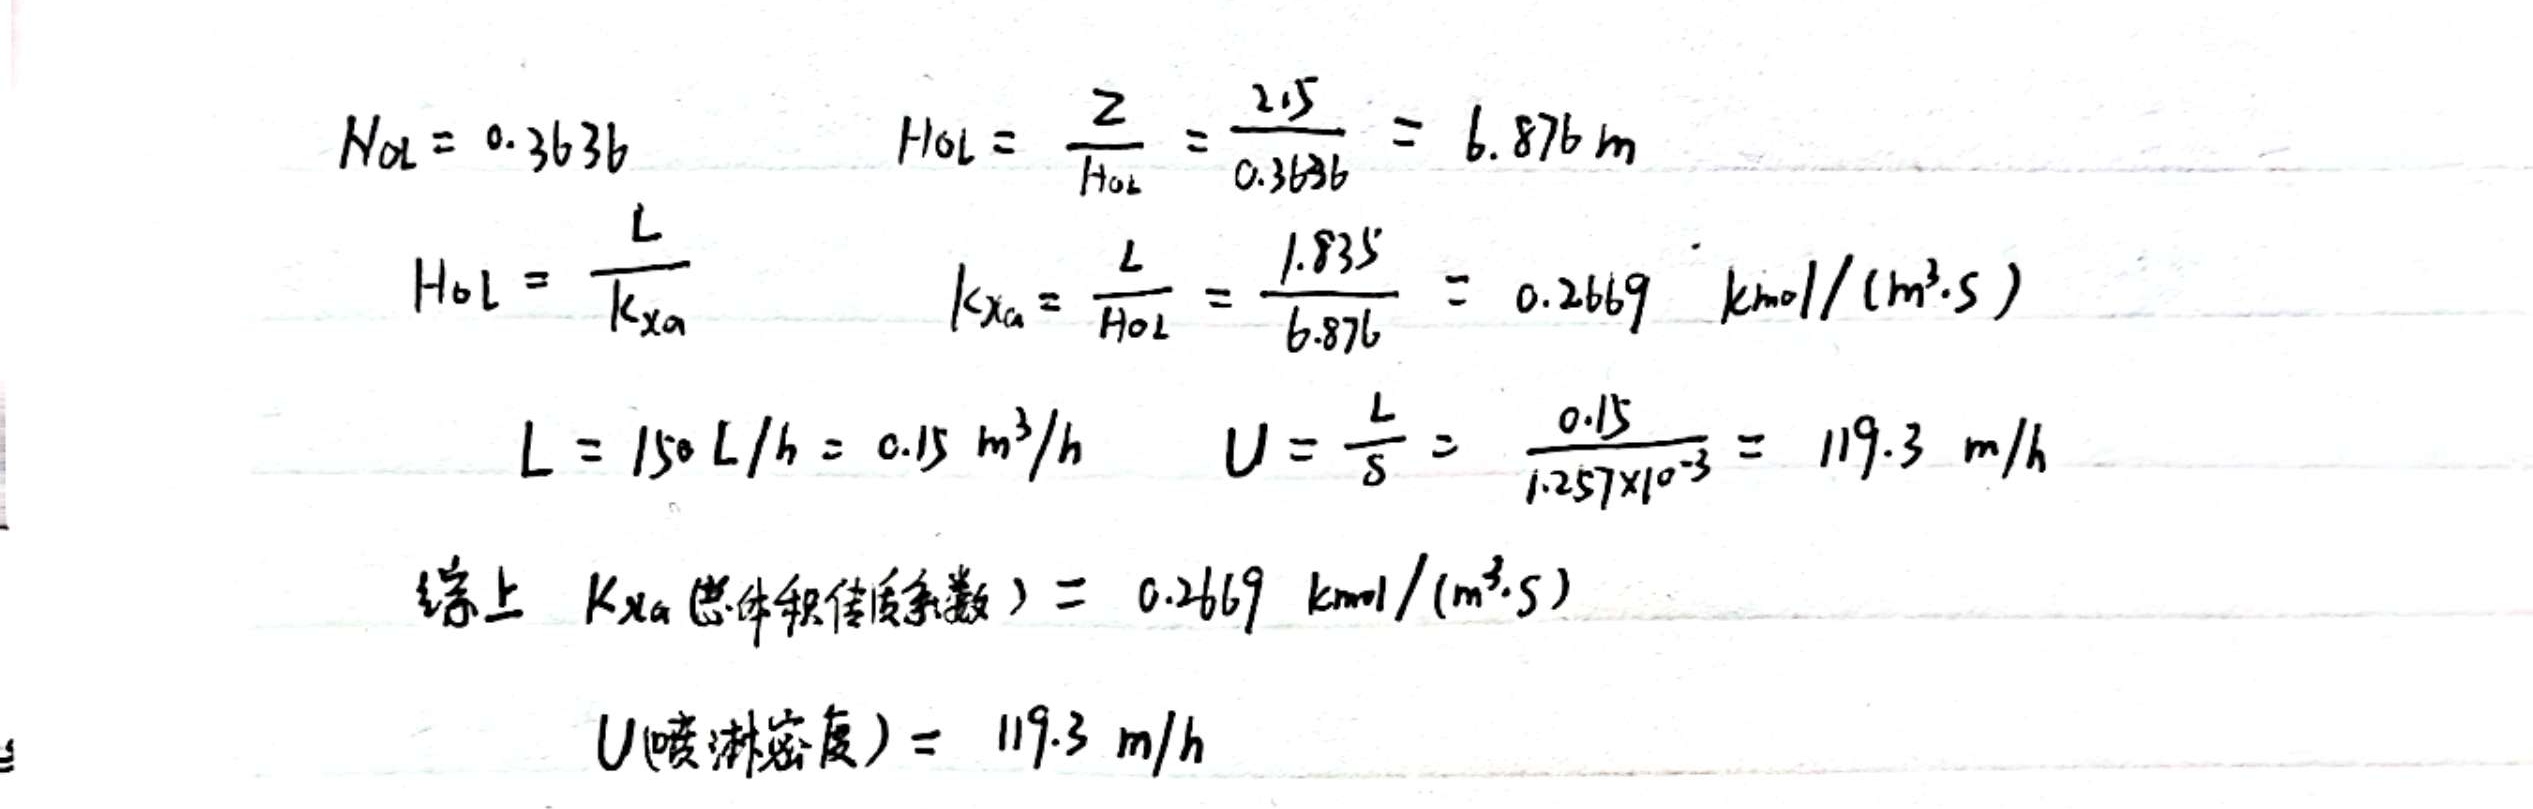 NOL = 0.3636 HOL = Z/HOL = 2.5/0.3636 = 6.876 m
HOL = L/Kxa Kxa = L/HOL = 1.835/6.876 = 0.2669 kmol/(m³·s)
L = 150 L/h = 0.15 m³/h U = L/S = 0.15/1.257×10⁻³ = 119.3 m/h
综上 Kxa (总体积传质系数) = 0.2669 kmol/(m³·s)
U(喷淋密度) = 119.3 m/h